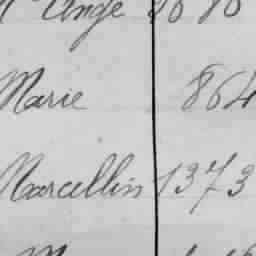 Ange
Marie 864
Marcellin 1373